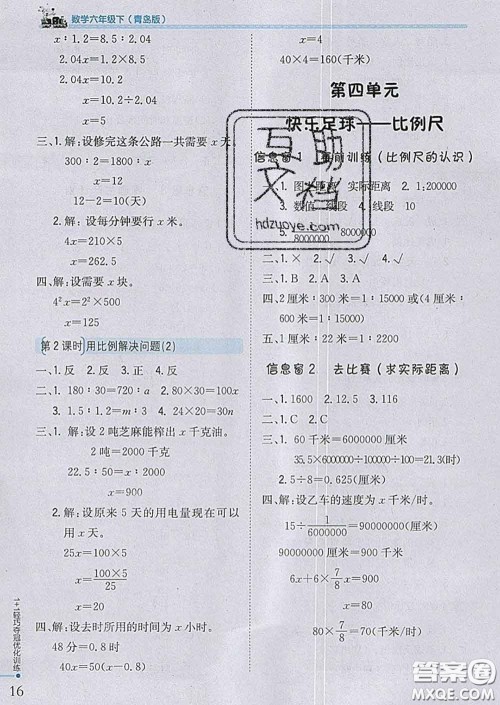 数学六年级下(青岛版)
x∶1.2=8.5∶2.04
2.04x=8.5×1.2
2.04x=10.2
x=10.2÷2.04
x=5
三、1.解:设修完这条公路一共需要x天。
300∶1800=2∶x
x=12
12-2=10(天)
2.解:设每分钟要行x米。
4x=210×5
x=262.5
四、解:设需要x块。
4²x=2²×500
x=125
第2课时 用比例解决问题(2)
一、1.反 2.反 3.正 4.反
二、1.180∶30=720∶a 2.80×30=100x
3.1.5∶1.2=m∶3 4.24×20=30x
三、1.解:设2吨芝麻能榨出x千克油。
2吨=2000千克
x=900
2.解:设原来5天的用电量现在可以用x天。
25x=100×5
x=100×5/25
x=20
四、解:设去时所用的时间为x小时。
48分=0.8时
40x=50(x-0.8)
x=4
40×4=160(千米)
第四单元
快乐足球——比例尺
信息窗1 赛前训练(比例尺的认识)
一、1.图上距离 实际距离 2.1∶200000
3.数值 线段 4.线段 10
5.8000000 8000000
二、1.× 2.× 3.√ 4.√
三、1.B 2.A 3.A
四、2厘米∶300厘米=1∶150
五、1.2厘米∶0.4厘米=3∶1
信息窗2 去比赛(求实际距离)
一、1.1600 2.12.5 3.116
二、1.C 2.A 3.B
三、1.60千米=6000000厘米
35.5×6000000÷100÷100=21.3(千米)
2.5÷8=0.625(厘米)
四、解:设乙车的速度为x千米/时。
15÷1/6000000=90000000(厘米)
90000000厘米=900千米
6x+6×7/8x=900
x=80
80×7/8=70(千米/时)
互助文档
hdzuoye.com
1+1轻巧夺冠优化训练
16
答案圈
MXQE.COM